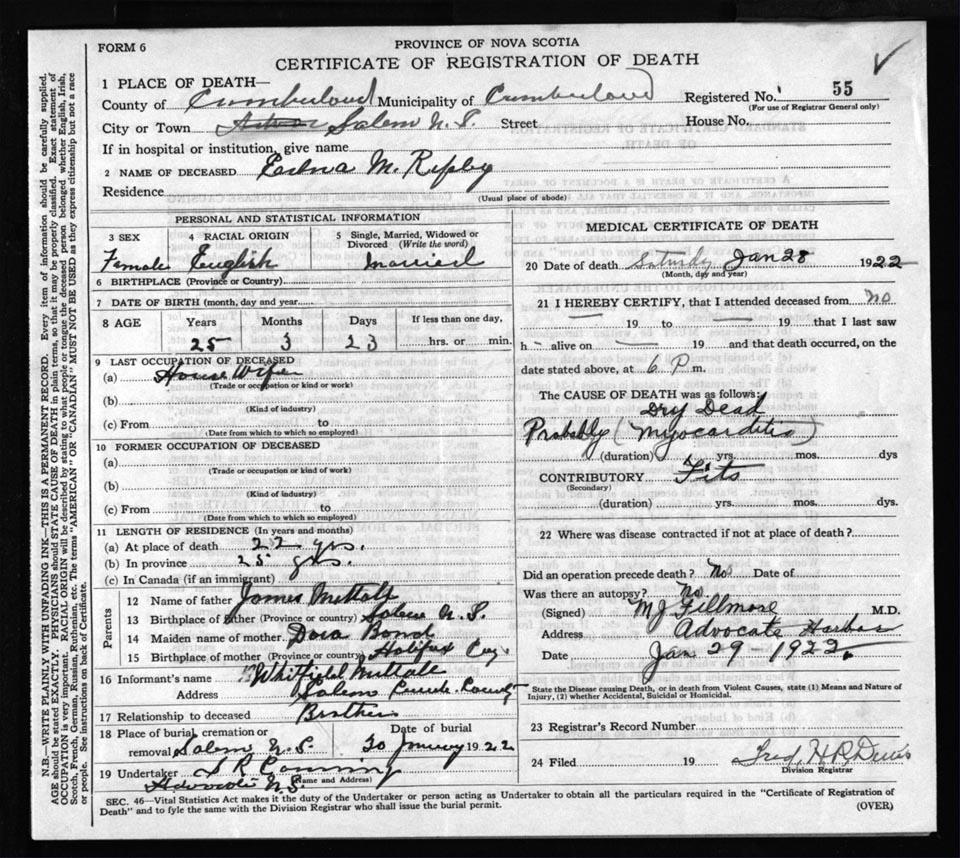 FORM 6
PROVINCE OF NOVA SCOTIA
CERTIFICATE OF REGISTRATION OF DEATH
1 PLACE OF DEATH—
County of Cumberland Municipality of Cumberland Registered No. 55
(For use of Registrar General only)
City or Town Salem N.S. Street House No.
If in hospital or institution, give name
2 NAME OF DECEASED Edna M. Ripley
Residence
(Usual place of abode)
PERSONAL AND STATISTICAL INFORMATION
3 SEX 4 RACIAL ORIGIN 5 Single, Married, Widowed or Divorced (Write the word)
Female English Married
6 BIRTHPLACE (Province or Country)
7 DATE OF BIRTH (month, day and year)
8 AGE Years Months Days If less than one day,
25 3 23 hrs. or min.
9 LAST OCCUPATION OF DECEASED
(a) House Wife
(Trade or occupation or kind of work)
(b)
(Kind of industry)
(c) From to
(Date from which to which so employed)
10 FORMER OCCUPATION OF DECEASED
(a)
(Trade or occupation or kind of work)
(b)
(Kind of industry)
(c) From to
(Date from which to which so employed)
11 LENGTH OF RESIDENCE (In years and months)
(a) At place of death 22 yrs.
(b) In province 25 yrs.
(c) In Canada (if an immigrant)
Parents
12 Name of father James
13 Birthplace of father (Province or country) Salem N.S.
14 Maiden name of mother Dora Bond
15 Birthplace of mother (Province or country) Halifax
16 Informant's name Whitfield
Address Salem
17 Relationship to deceased Brother
18 Place of burial, cremation or removal Salem N.S. Date of burial 30 January 1922
19 Undertaker
(Name and Address)
Advocate N.S.
MEDICAL CERTIFICATE OF DEATH
20 Date of death Saturday Jan 28 1922
(Month, day and year)
21 I HEREBY CERTIFY, that I attended deceased from no
— 19 to — 19 that I last saw
h— alive on — 19 and that death occurred, on the
date stated above, at 6 P m.
The CAUSE OF DEATH was as follows:
Dead
Probably (Myocarditis)
(duration) yrs. mos. dys
CONTRIBUTORY Fits
(Secondary)
(duration) yrs. mos. dys.
22 Where was disease contracted if not at place of death?
Did an operation precede death? No Date of
Was there an autopsy? No.
(Signed) M J Fillmore M.D.
Address Advocate Harbor
Date Jan 29 - 1922.
State the Disease causing Death, or in death from Violent Causes, state (1) Means and Nature of
Injury, (2) whether Accidental, Suicidal or Homicidal.
23 Registrar's Record Number
24 Filed 19
Division Registrar
SEC. 46—Vital Statistics Act makes it the duty of the Undertaker or person acting as Undertaker to obtain all the particulars required in the "Certificate of Registration of
Death" and to fyle the same with the Division Registrar who shall issue the burial permit. (OVER)
N.B.—WRITE PLAINLY WITH UNFADING INK—THIS IS A PERMANENT RECORD. Every item of information should be carefully supplied.
AGE should be stated EXACTLY. PHYSICIANS should STATE CAUSE OF DEATH in plain terms, so that it may be properly classified. Exact statement of
OCCUPATION is very important. RACIAL ORIGIN will be described by stating to what people or tongue the deceased person belonged whether English, Irish,
Scotch, French, German, Russian, Ruthenian, etc. The terms "AMERICAN" OR "CANADIAN" MUST NOT BE USED as they express citizenship but not a race
or people. See instructions on back of Certificate.